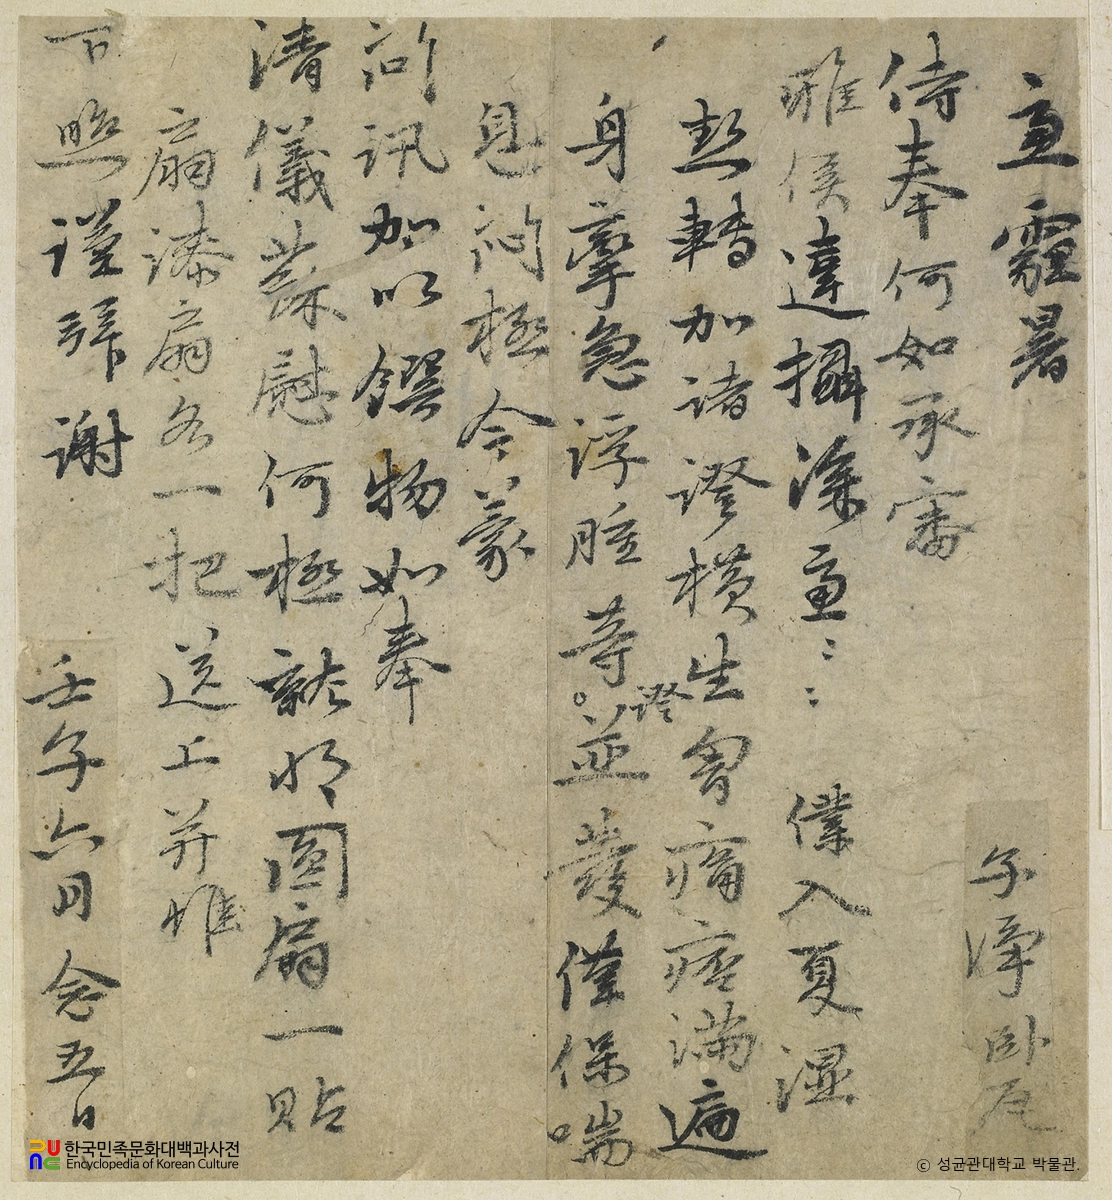 亟霾暑
侍奉何如承審
雅候違攝深亟〻〻 僕入夏濕
熱轉加諸證橫生胷痛痞滿遍
身攣急浮腫等證並發僅保喘
息悶極今蒙
問訊加以饌物如奉
清儀蘇慰何極就明圓扇一貼
扇漆扇各一把送上并惟
下照謹拜謝
壬午六月念五日
한국민족문화대백과사전
Encyclopedia of Korean Culture
© 성균관대학교 박물관.